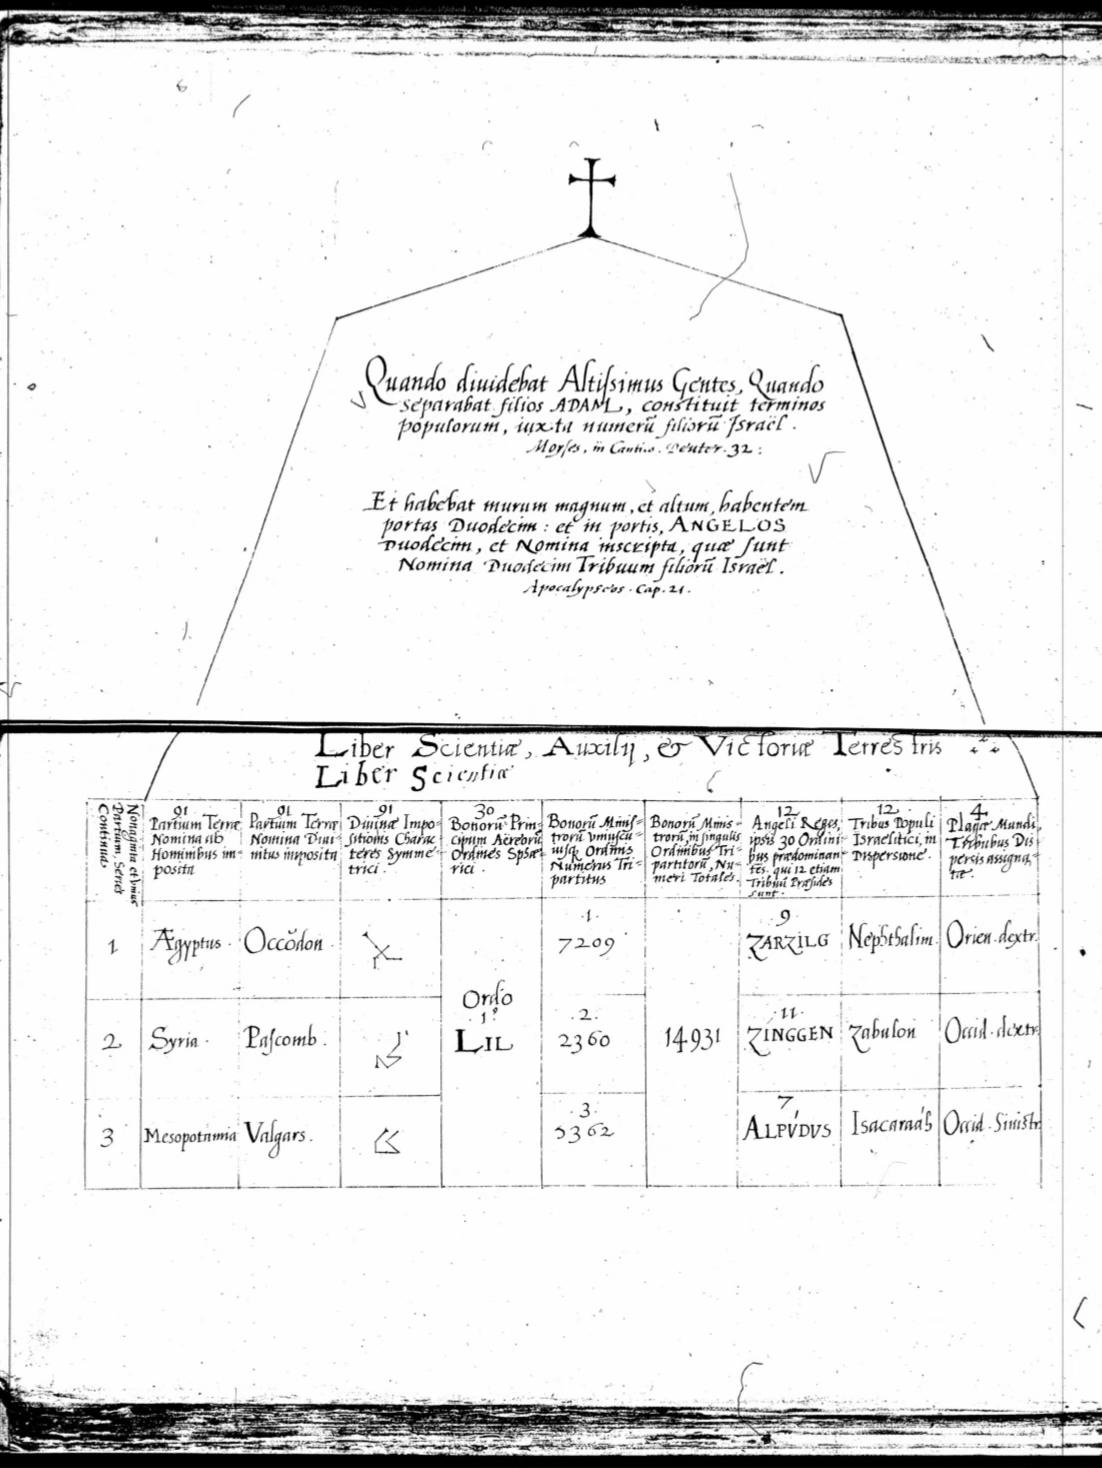 Quando diuidebat Altissimus Gentes, Quando
separabat filios ADAM, constituit terminos
populorum, iuxta numerũ filiorũ Israël.
Moyses, in Cantico. Deuter. 32:
Et habebat murum magnum, et altum, habentem
portas Duodecim: et in portis, ANGELOS
Duodecim, et Nomina inscripta, quæ sunt
Nomina Duodecim Tribuum filiorũ Israël.
Apocalypseos. Cap. 21.
Liber Scientiæ, Auxilij, & Victoriæ Terrestris
Liber Scientiæ
Nonaginta et vnius
Partium, Series
Continua,
91
Partium Terræ
Nomina ab
Hominibus im=
posita
91
Partium Terræ
Nomina Diui=
nitus imposita
91
Diuinæ Impo=
sitionis Charac
teres Symme=
trici.
30
Bonorũ Prin=
cipum Aëreorũ
Ordines Sphæ
rici.
Bonorũ Minis=
trorũ vniuscu=
iusq Ordinis
Numerus Tri=
partitus
Bonorũ Minis=
trorũ, in singulis
Ordinibus Tri=
partitorũ, Nu=
meri Totales.
12
Angeli Reges,
ipsis 30 Ordini=
bus prædominan=
tes. qui 12 etiam
Tribuũ Præsides
sunt.
12
Tribus Populi
Israëlitici, in
Dispersione.
4
Plagæ Mundi,
Tribubus Dis
persis assigna=
tæ.
1 Ægyptus. Occodon. .1. 7209 9 ZARZILG Nephthalim. Orien. dextr.
2 Syria. Pascomb. Ordo 1º LIL .2. 2360 14931 .11. ZINGGEN Zabulon Occid. dextr.
3 Mesopotamia Valgars. .3. 5362 7 ALPVDVS Isacaraáh Occid. Sinistr.